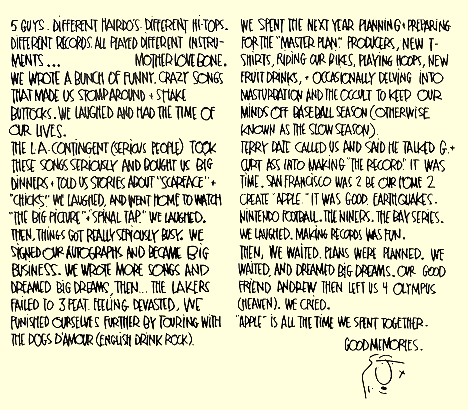 5 GUYS. DIFFERENT HAIRDO'S. DIFFERENT HI-TOPS.
DIFFERENT RECORDS. ALL PLAYED DIFFERENT INSTRU-
MENTS... MOTHER LOVE BONE.
WE WROTE A BUNCH OF FUNNY, CRAZY SONGS
THAT MADE US STOMP AROUND + SHAKE
BUTTOCKS. WE LAUGHED AND HAD THE TIME OF
OUR LIVES.
THE L.A. CONTINGENT (SERIOUS PEOPLE) TOOK
THESE SONGS SERIOUSLY AND BOUGHT US BIG
DINNERS + TOLD US STORIES ABOUT "SCARFACE" +
"CHICKS". WE LAUGHED, AND WENT HOME TO WATCH
"THE BIG PICTURE" + "SPINAL TAP." WE LAUGHED.
THEN, THINGS GOT REALLY SERIOUSLY BUSY. WE
SIGNED OUR AUTOGRAPHS AND BECAME BIG
BUSINESS. WE WROTE MORE SONGS AND
DREAMED BIG DREAMS, THEN... THE LAKERS
FAILED TO 3 PEAT. FEELING DEVASTED, WE
PUNISHED OURSELVES FURTHER BY TOURING WITH
THE DOGS D'AMOUR (ENGLISH DRINK ROCK).
WE SPENT THE NEXT YEAR PLANNING + PREPARING
FOR THE "MASTER PLAN" PRODUCERS, NEW T-
SHIRTS, RIDING OUR BIKES, PLAYING HOOPS, NEW
FRUIT DRINKS, + OCCASIONALLY DELVING INTO
MASTURBATION AND THE OCCULT TO KEEP OUR
MINDS OFF BASEBALL SEASON (OTHERWISE
KNOWN AS THE SLOW SEASON).
TERRY DATE CALLED US AND SAID HE TALKED G. +
CURT ASS INTO MAKING "THE RECORD." IT WAS
TIME. SAN FRANCISCO WAS 2 BE OUR HOME 2
CREATE "APPLE." IT WAS GOOD. EARTHQUAKES.
NINTENDO FOOTBALL. THE NINERS. THE BAY SERIES.
WE LAUGHED. MAKING RECORDS WAS FUN.
THEN, WE WAITED. PLANS WERE PLANNED. WE
WAITED, AND DREAMED BIG DREAMS. OUR GOOD
FRIEND ANDREW THEN LEFT US 4 OLYMPUS
(HEAVEN). WE CRIED.
"APPLE" IS ALL THE TIME WE SPENT TOGETHER.
GOOD MEMORIES.